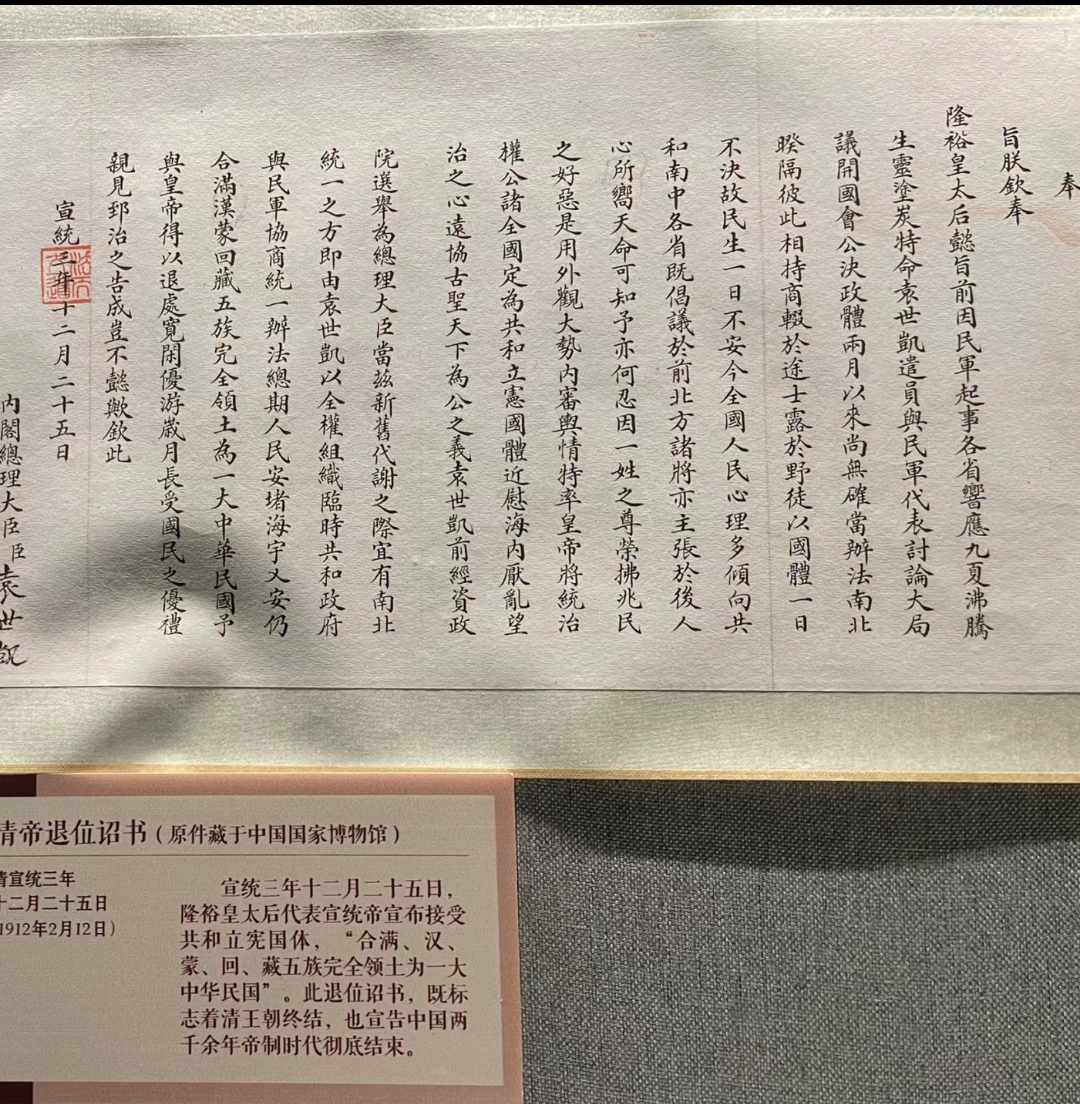 奉
旨朕欽奉
隆裕皇太后懿旨前因民軍起事各省響應九夏沸騰
生靈塗炭特命袁世凱遣員與民軍代表討論大局
議開國會公決政體兩月以來尚無確當辦法南北
暌隔彼此相持商輟於途士露於野徒以國體一日
不決故民生一日不安今全國人民心理多傾向共
和南中各省既倡議於前北方諸將亦主張於後人
心所嚮天命可知予亦何忍因一姓之尊榮拂兆民
之好惡是用外觀大勢內審輿情特率皇帝將統治
權公諸全國定為共和立憲國體近慰海內厭亂望
治之心遠協古聖天下為公之義袁世凱前經資政
院選舉為總理大臣當茲新舊代謝之際宜有南北
統一之方即由袁世凱以全權組織臨時共和政府
與民軍協商統一辦法總期人民安堵海宇乂安仍
合滿漢蒙回藏五族完全領土為一大中華民國予
與皇帝得以退處寬閑優游歲月長受國民之優禮
親見郅治之告成豈不懿歟欽此
宣統三年十二月二十五日
內閣總理大臣臣袁世凱
清帝退位诏书（原件藏于中国国家博物馆）
清宣统三年
十二月二十五日
（1912年2月12日）
宣统三年十二月二十五日，
隆裕皇太后代表宣统帝宣布接受
共和立宪国体，“合满、汉、
蒙、回、藏五族完全领土为一大
中华民国”。此退位诏书，既标
志着清王朝终结，也宣告中国两
千余年帝制时代彻底结束。